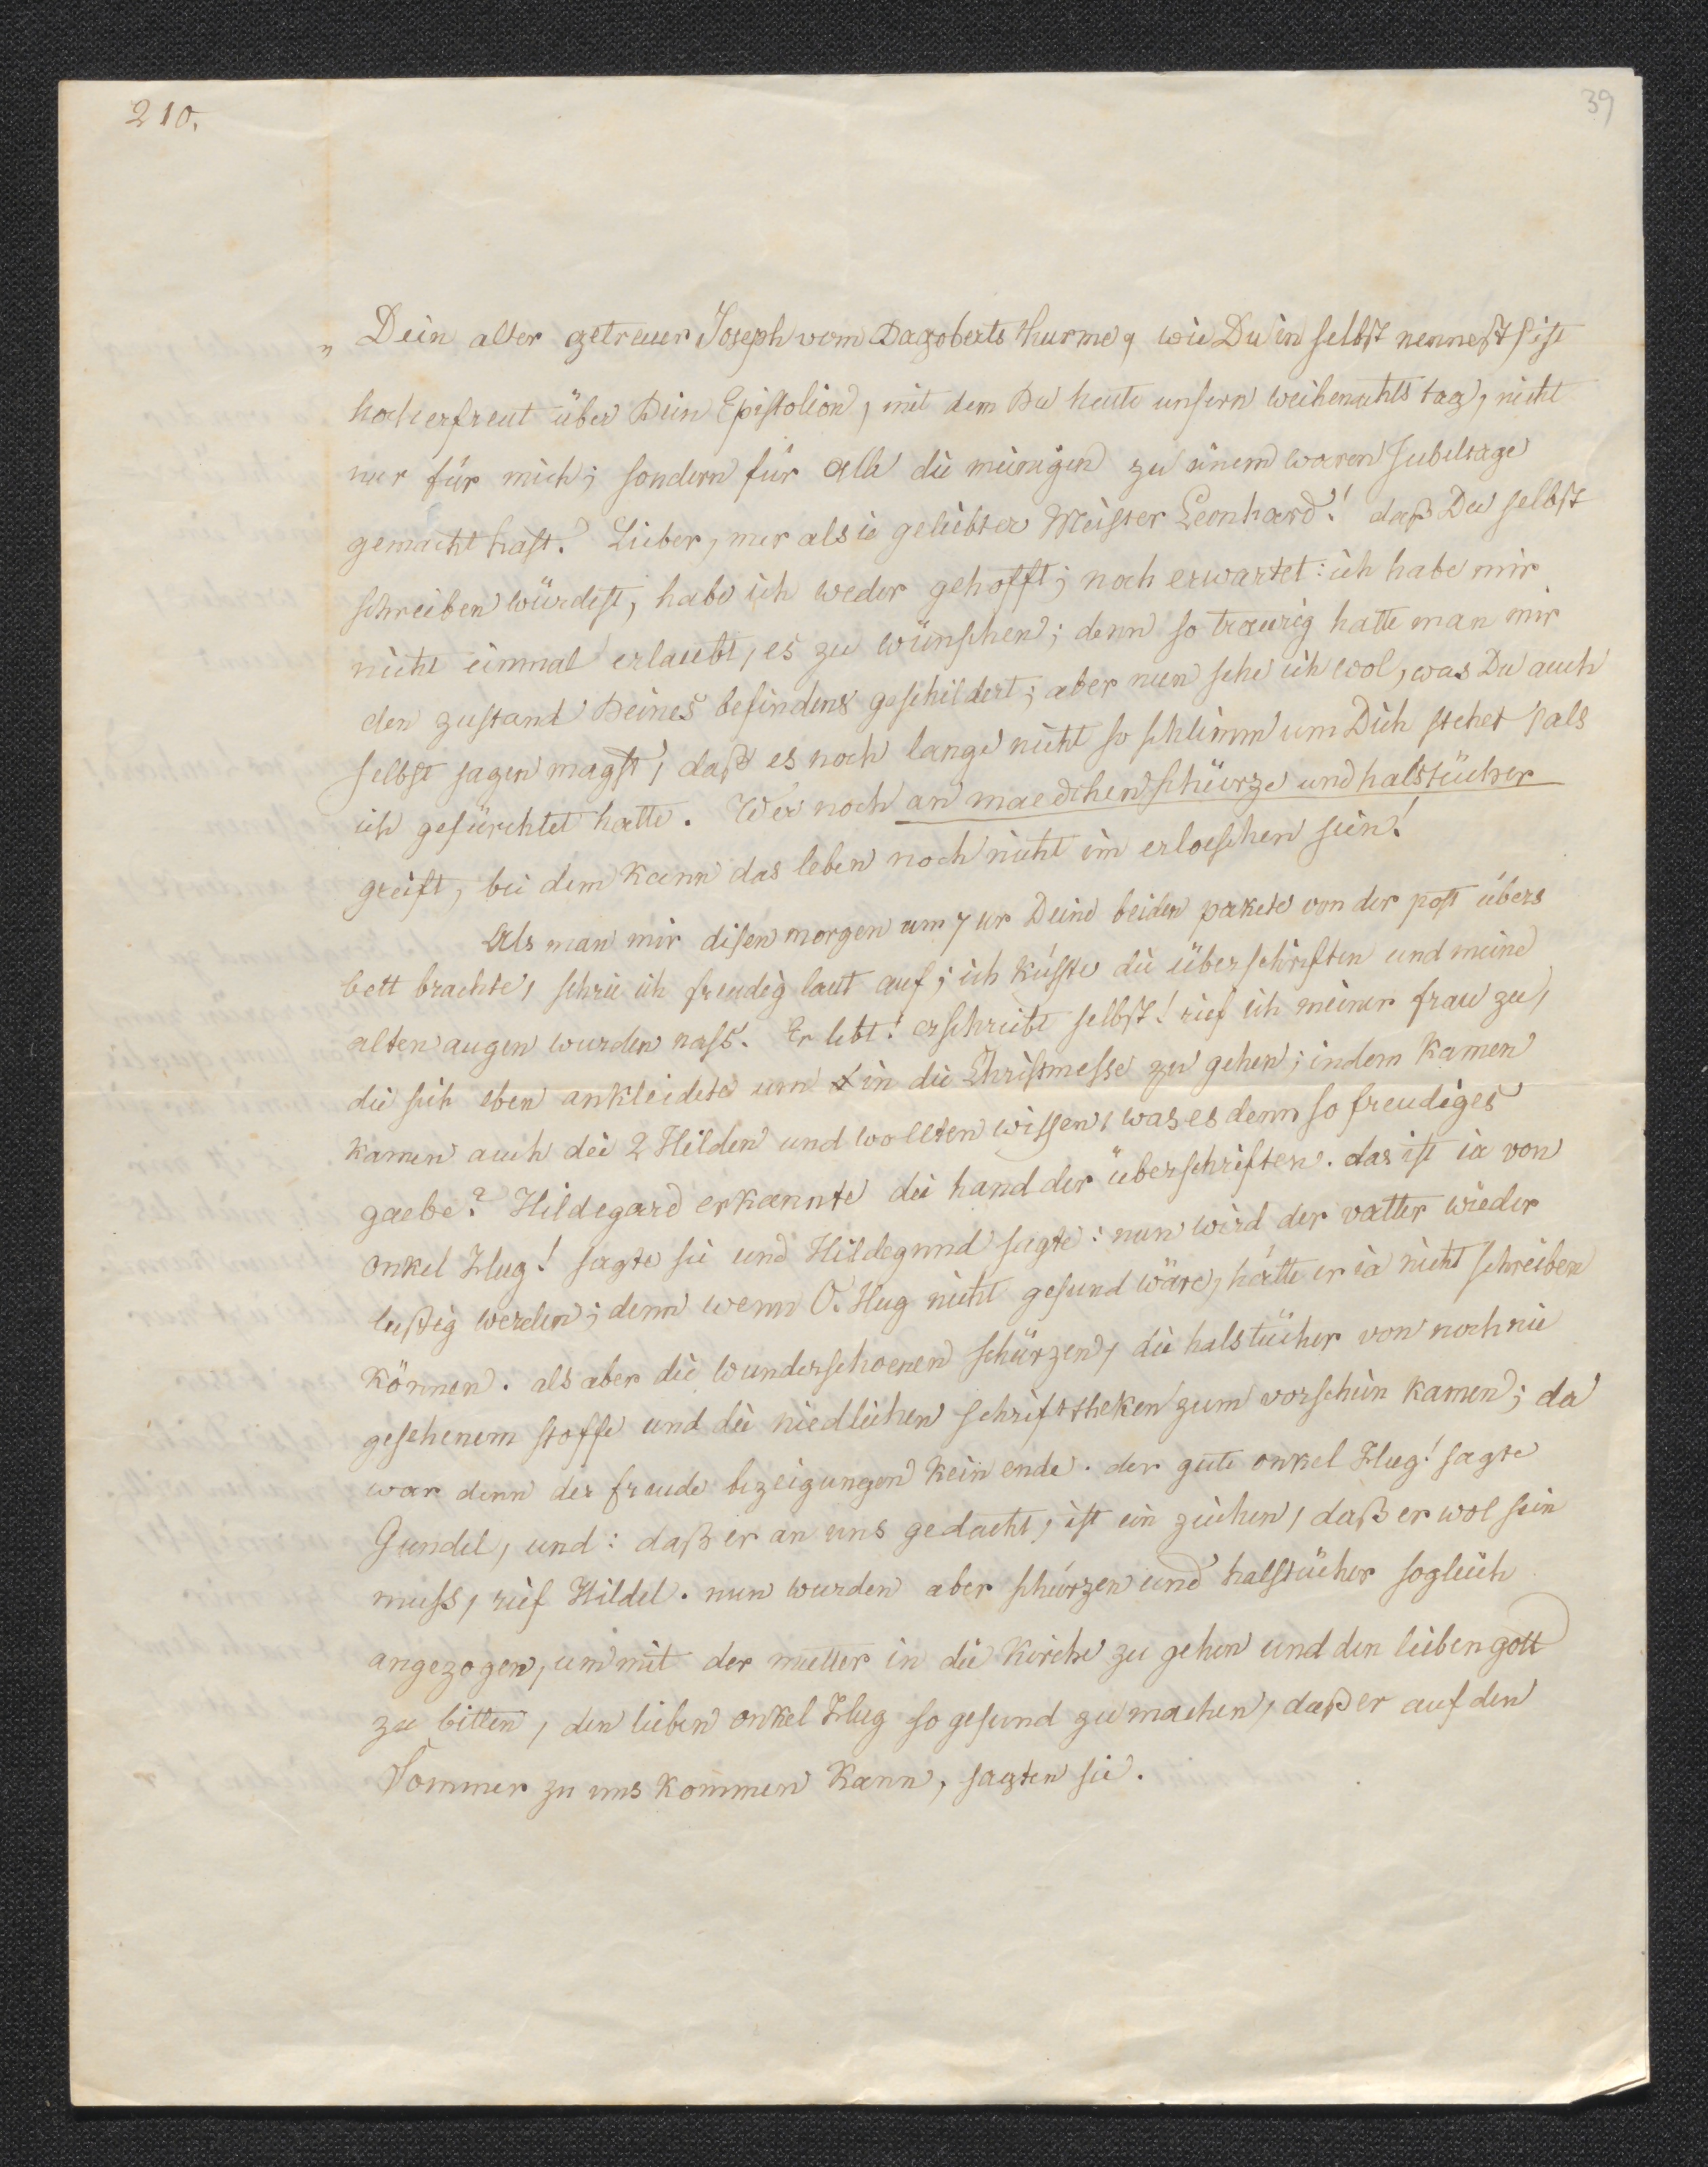 210.
39
„ Dein alter getreuer Joseph vom Dagoberts thurme, wie Du in selbst nennest, ist
hocherfreut über Dein Epistolion, mit dem Du heute unsern weihenachtstag, nicht
nur für mich; sondern für alle die meinigen zu einem waren Jubeltage
gemacht hast. Lieber, mer als ie geliebter Meister Leonhard! daß Du selbst
schreiben würdest, habe ich weder gehofft; noch erwartet: ich habe mir
nicht einmal erlaubt, es zu wünschen; denn so traurig hatte man mir
den zustand Deines befindens geschildert; aber nun sehe ich wol, was Du auch
selbst sagen magst, daß es noch lange nicht so schlimm um Dich stehet, als
ich gefürchtet hatte. Wer noch an maedchenschürze und halstücher
greift, bei dem kann das leben noch nicht im erloeschen sein!
Als man mir disen morgen um 7 ur Deine beiden pakete von der post übers
bett brachte, schrie ich freudig laut auf; ich küsste die überschriften und meine
alten augen wurden nass. Er lebt! er schreibt selbst! rief ich meiner frau zu,
die sich eben ankleidete um in die Christmesse zu gehen; indem kamen
kamen auch die 2 Hilden und wollten wissen, was es denn so freudiges
gaebe? Hildegard erkannte die hand der überschriften. das ist ia von
onkel Hug! sagte sie und Hildegund sagte: nun wird der vatter wieder
lustig werden; denn wenn O. Hug nicht gesund wäre, hätte er ia nicht schreiben
können. als aber die wunderschoenen schürzen, die halstücher von noch nie
gesehenem stoffe und die niedlichen schrifttheken zum vorschein kamen; da
war denn der freude bezeigungen kein ende. der gute onkel Hug! sagte
Gundel, und: daß er an uns gedacht, ist ein zeichen, daß er wol sein
muss, rief Hildel. nun wurden aber schürzen und halstücher sogleich
angezogen, um mit der mutter in die Kirche zu gehen und den lieben gott
zu bitten, den lieben onkel Hug so gesund zu machen, daß er auf den
Sommer zu uns kommen kann, sagten sie.